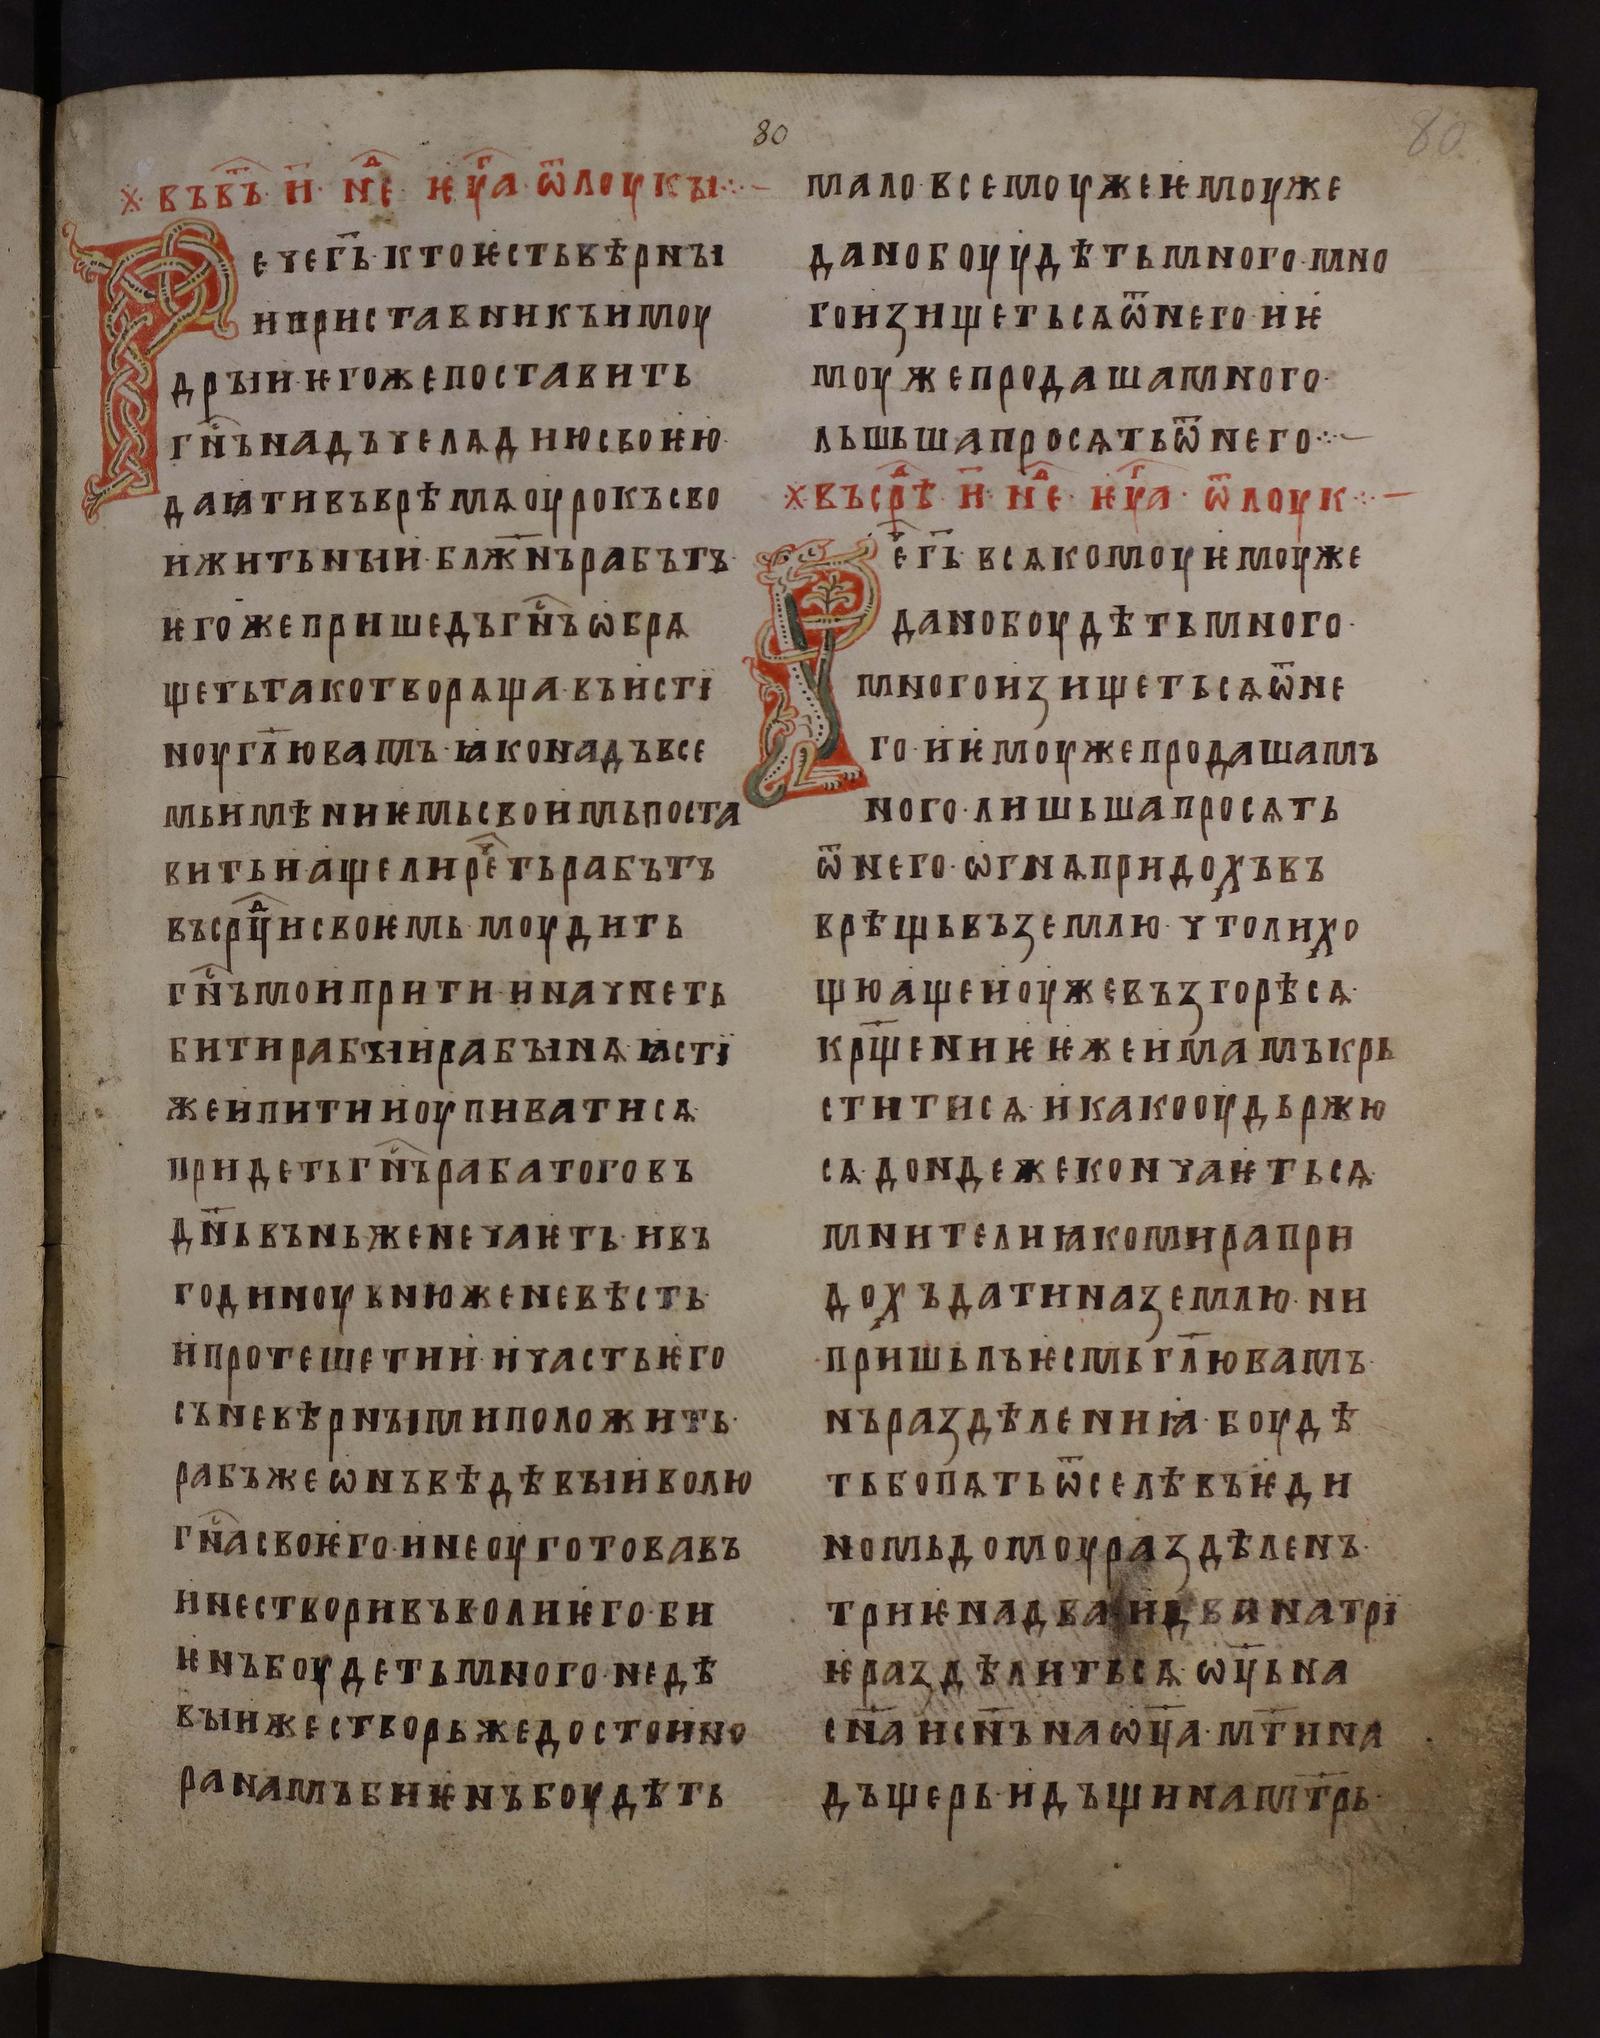 80
80
във҃ъ · н҃ · не҃ д · ѥуⷢ҇а · ѿ лоукꙑ ·:·
Рече г҃ь · кто ѥсть вѣрнꙑ
и приставникъ и моу
дрꙑи · ѥгоже поставить
гⷭ҇нъ надъ челѧдию своѥю ·
даꙗти въ врѣмѧ оурокъ сво
и житьнꙑи · блж҃нъ рабъ тъ ·
ѥгоже пришедъ гⷭ҇нъ ѡбрѧ
щеть тако творѧща · въ исті
ноу гл҃ю вамъ · ꙗко надъ все
мь имѣниѥмь своимь поста
вить и · аще ли реⷱ҇ть рабъ тъ
въ срⷣци своѥмь · моудить
гⷭ҇нъ мои прити · и начнеть
бити рабꙑ и рабꙑнѧ ꙗсті
же и пити и оупиватисѧ ·
придеть гⷭ҇нъ раба того въ
дн҃ь въ ньже не чаѥть · и въ
годиноу в нюже не вѣсть ·
и протешеть и · и часть ѥго
съ невѣрнꙑми положить ·
рабъ же ѡнъ вѣдѣвꙑи волю
гⷭ҇на своѥго · и не оуготовавъ
и не створивъ воли ѥго · би
ѥнъ боудеть много · не дѣ
вꙑи же створь же достоино
ранамъ биѥнъ боудѣть
мало · всемоу же ѥмоуже
дано боудѣть много · мно
го изищетьсѧ ѿ него · и ѥ
моуже продаша много ·
льшьша просѧть ѿ него ·:·
въ срⷣѣ · н҃ · неⷣ · ѥуⷢ҇а · ѿ лоук ·:·
Реⷱ҇ г҃ь · всѧкомоу ѥмоуже
дано боудѣть много ·
много изищетьсѧ ѿ не
го · и ѥмоуже продаша мъ
ного · лишьша просѧть
ѿ него · ѡгнѧ придохъ въ
врѣщь въ землю · что ли хо
щю аще и оуже възгорѣсѧ ·
крщ҃ениѥ ѥже имамъ крь
ститисѧ · и како оудьржю
сѧ · дондеже коньчаѥтьсѧ ·
мните ли ꙗко мира при
дохъ дати на землю · ни
пришьлъ ѥсмь гл҃ю вамъ ·
нъ разⷣѣлениꙗ · боудѣ
ть бо пѧть ѿселѣ въ ѥди
номь домоу разⷣѣленъ ·
триѥ на два и два на трі
ѥ разⷣѣлитьсѧ · ѡц҃ь на
сн҃а и сн҃ъ на ѡц҃а · мт҃и на
дъщерь · и дъщи на мт҃рь ·